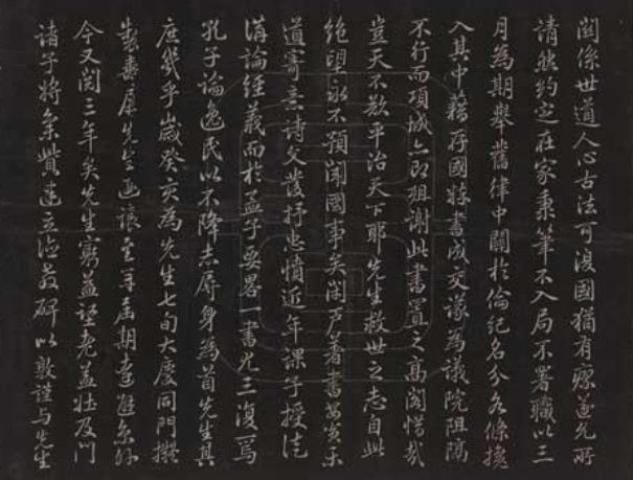 關係世道人心古法可復國猶有瘳遂允所
請然約定在家秉筆不入局不署職以三
月為期舉舊律中關於倫紀名分各條挽
入其中藉存國粹書成交議為議院阻隔
不行而項城亦即殂謝此書置之高閣惜哉
豈天不欲平治天下耶先生救世之志自此
絕望永不預聞國事矣閉戶著書安貧樂
道寄意詩文發抒忠憤近年課子授徒
講論經義而於孟子要畧一書尤三復焉
孔子論逸民以不降志辱身為首先生其
庶幾乎歲癸亥為先生七旬大慶同門擬
製壽屏先生函讓至再屆期遠避
今又閱三年矣先生窮益堅老益壯及門
諸子將集貲建立德教碑以敦謹与先生